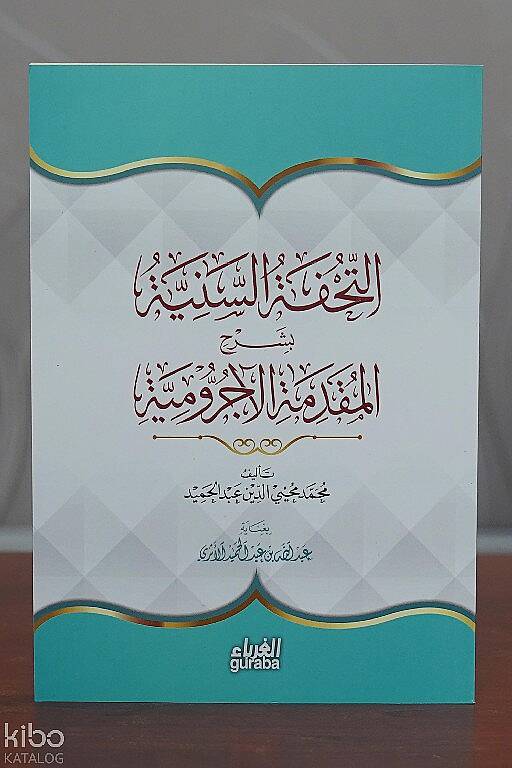 التُّحْفَةُ السَّنِيَّةُ
بِشَرْحِ
المُقَدِّمَةِ الآجُرُّومِيَّةِ
تأليف
مُحَمَّد مُحْيِي الدِّين عَبْد الحَمِيد
بِعِنَايَة
عبد الله بن عبد الحميد الأثري
الغرباء
guraba
kibo
KATALOG